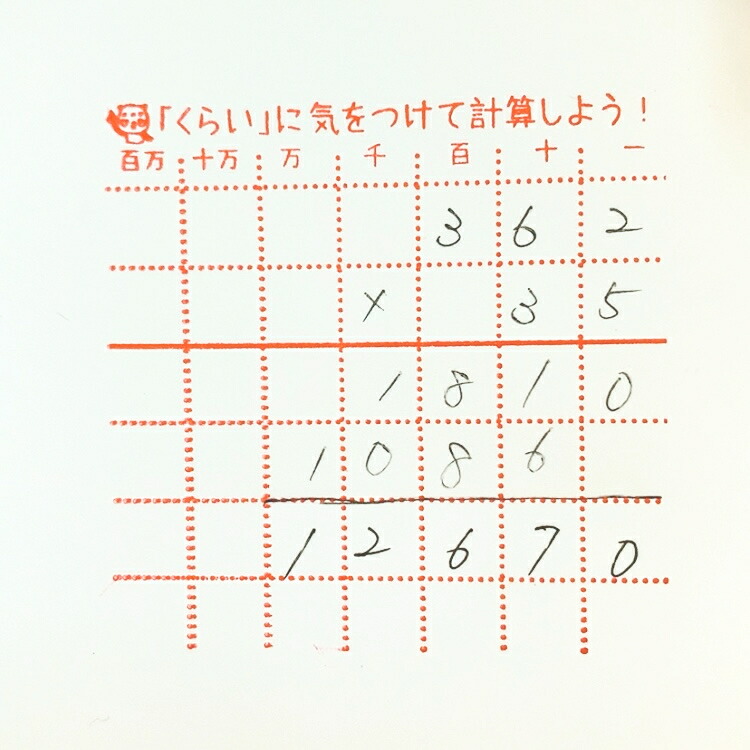 「くらい」に気をつけて計算しよう！
百万 十万 万 千 百 十 一
3 6 2
× 3 5
1 8 1 0
1 0 8 6
1 2 6 7 0